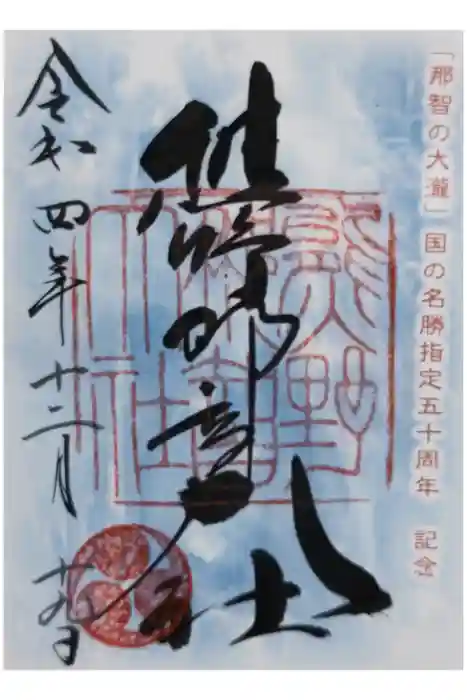 「那智の大瀧」国の名勝指定五十周年　記念
熊野那智大社
令和四年十二月十九日